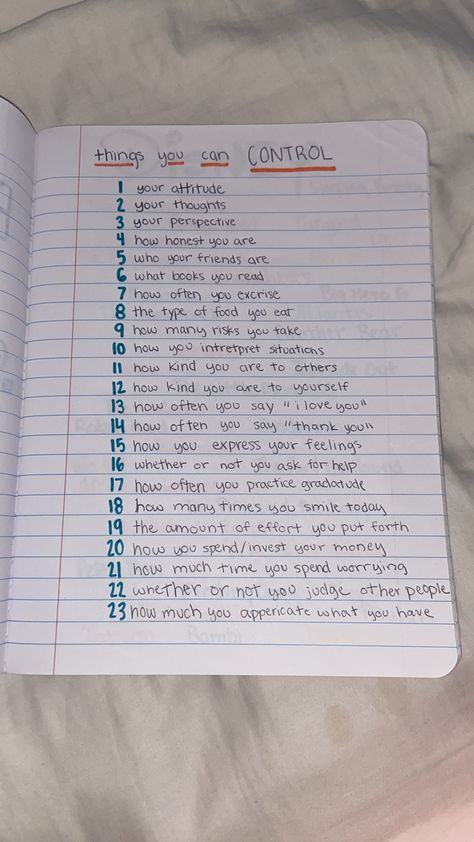 things you can CONTROL
1 your attitude
2 your thoughts
3 your perspective
4 how honest you are
5 who your friends are
6 what books you read
7 how often you excrise
8 the type of food you eat
9 how many risks you take
10 how you intretpret situations
11 how kind you are to others
12 how kind you are to yourself
13 how often you say "i love you"
14 how often you say "thank you"
15 how you express your feelings
16 whether or not you ask for help
17 how often you practice gradatude
18 how many times you smile today
19 the amount of effort you put forth
20 how you spend/invest your money
21 how much time you spend worrying
22 whether or not you judge other people
23 how much you appericate what you have
Bambi